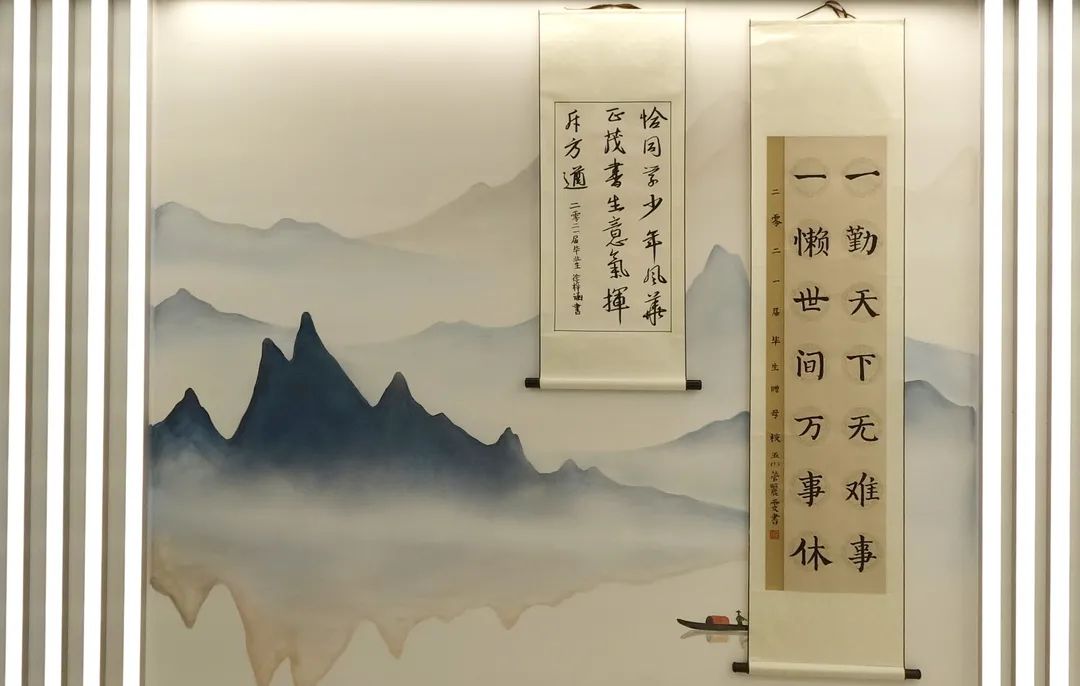 一勤天下无难事
一懒世间万事休
二零二一届毕生赠母校 五(六)
恰同学少年风华
正茂書生意氣揮
斥方遒
二零二一届毕业生 徐梓涵書